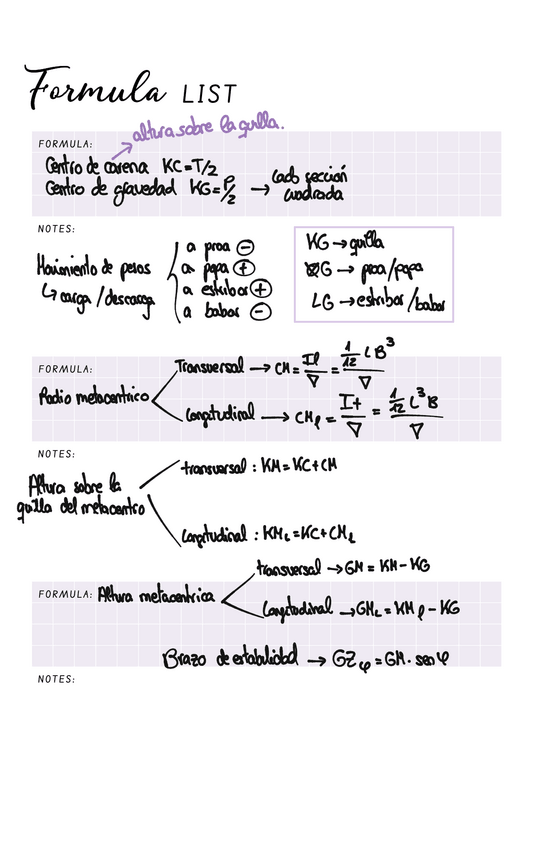 Formula LIST
altura sobre la quilla.
FORMULA:
Centro de carena KC=T/2
Centro de gravedad KG=P/2 → lado sección cuadrada
NOTES:
Movimiento de pesos
↳ carga / descarga
a proa ⊖
a popa ⊕
a estribor ⊕
a babor ⊖
KG → quilla
⊗G → proa/popa
LG → estribor/babor
FORMULA:
Radio metacentrico
Transversal → CM = Il/∇ = 1/12 L B³/∇
Longitudinal → CMl = It/∇ = 1/12 L³ B/∇
NOTES:
Altura sobre la
quilla del metacentro
transversal : KM = KC + CM
Longitudinal : KML = KC + CML
FORMULA: Altura metacentrica
transversal → GM = KM - KG
Longitudinal → GML = KMl - KG
Brazo de estabilidad → GZφ = GM · sen φ
NOTES: